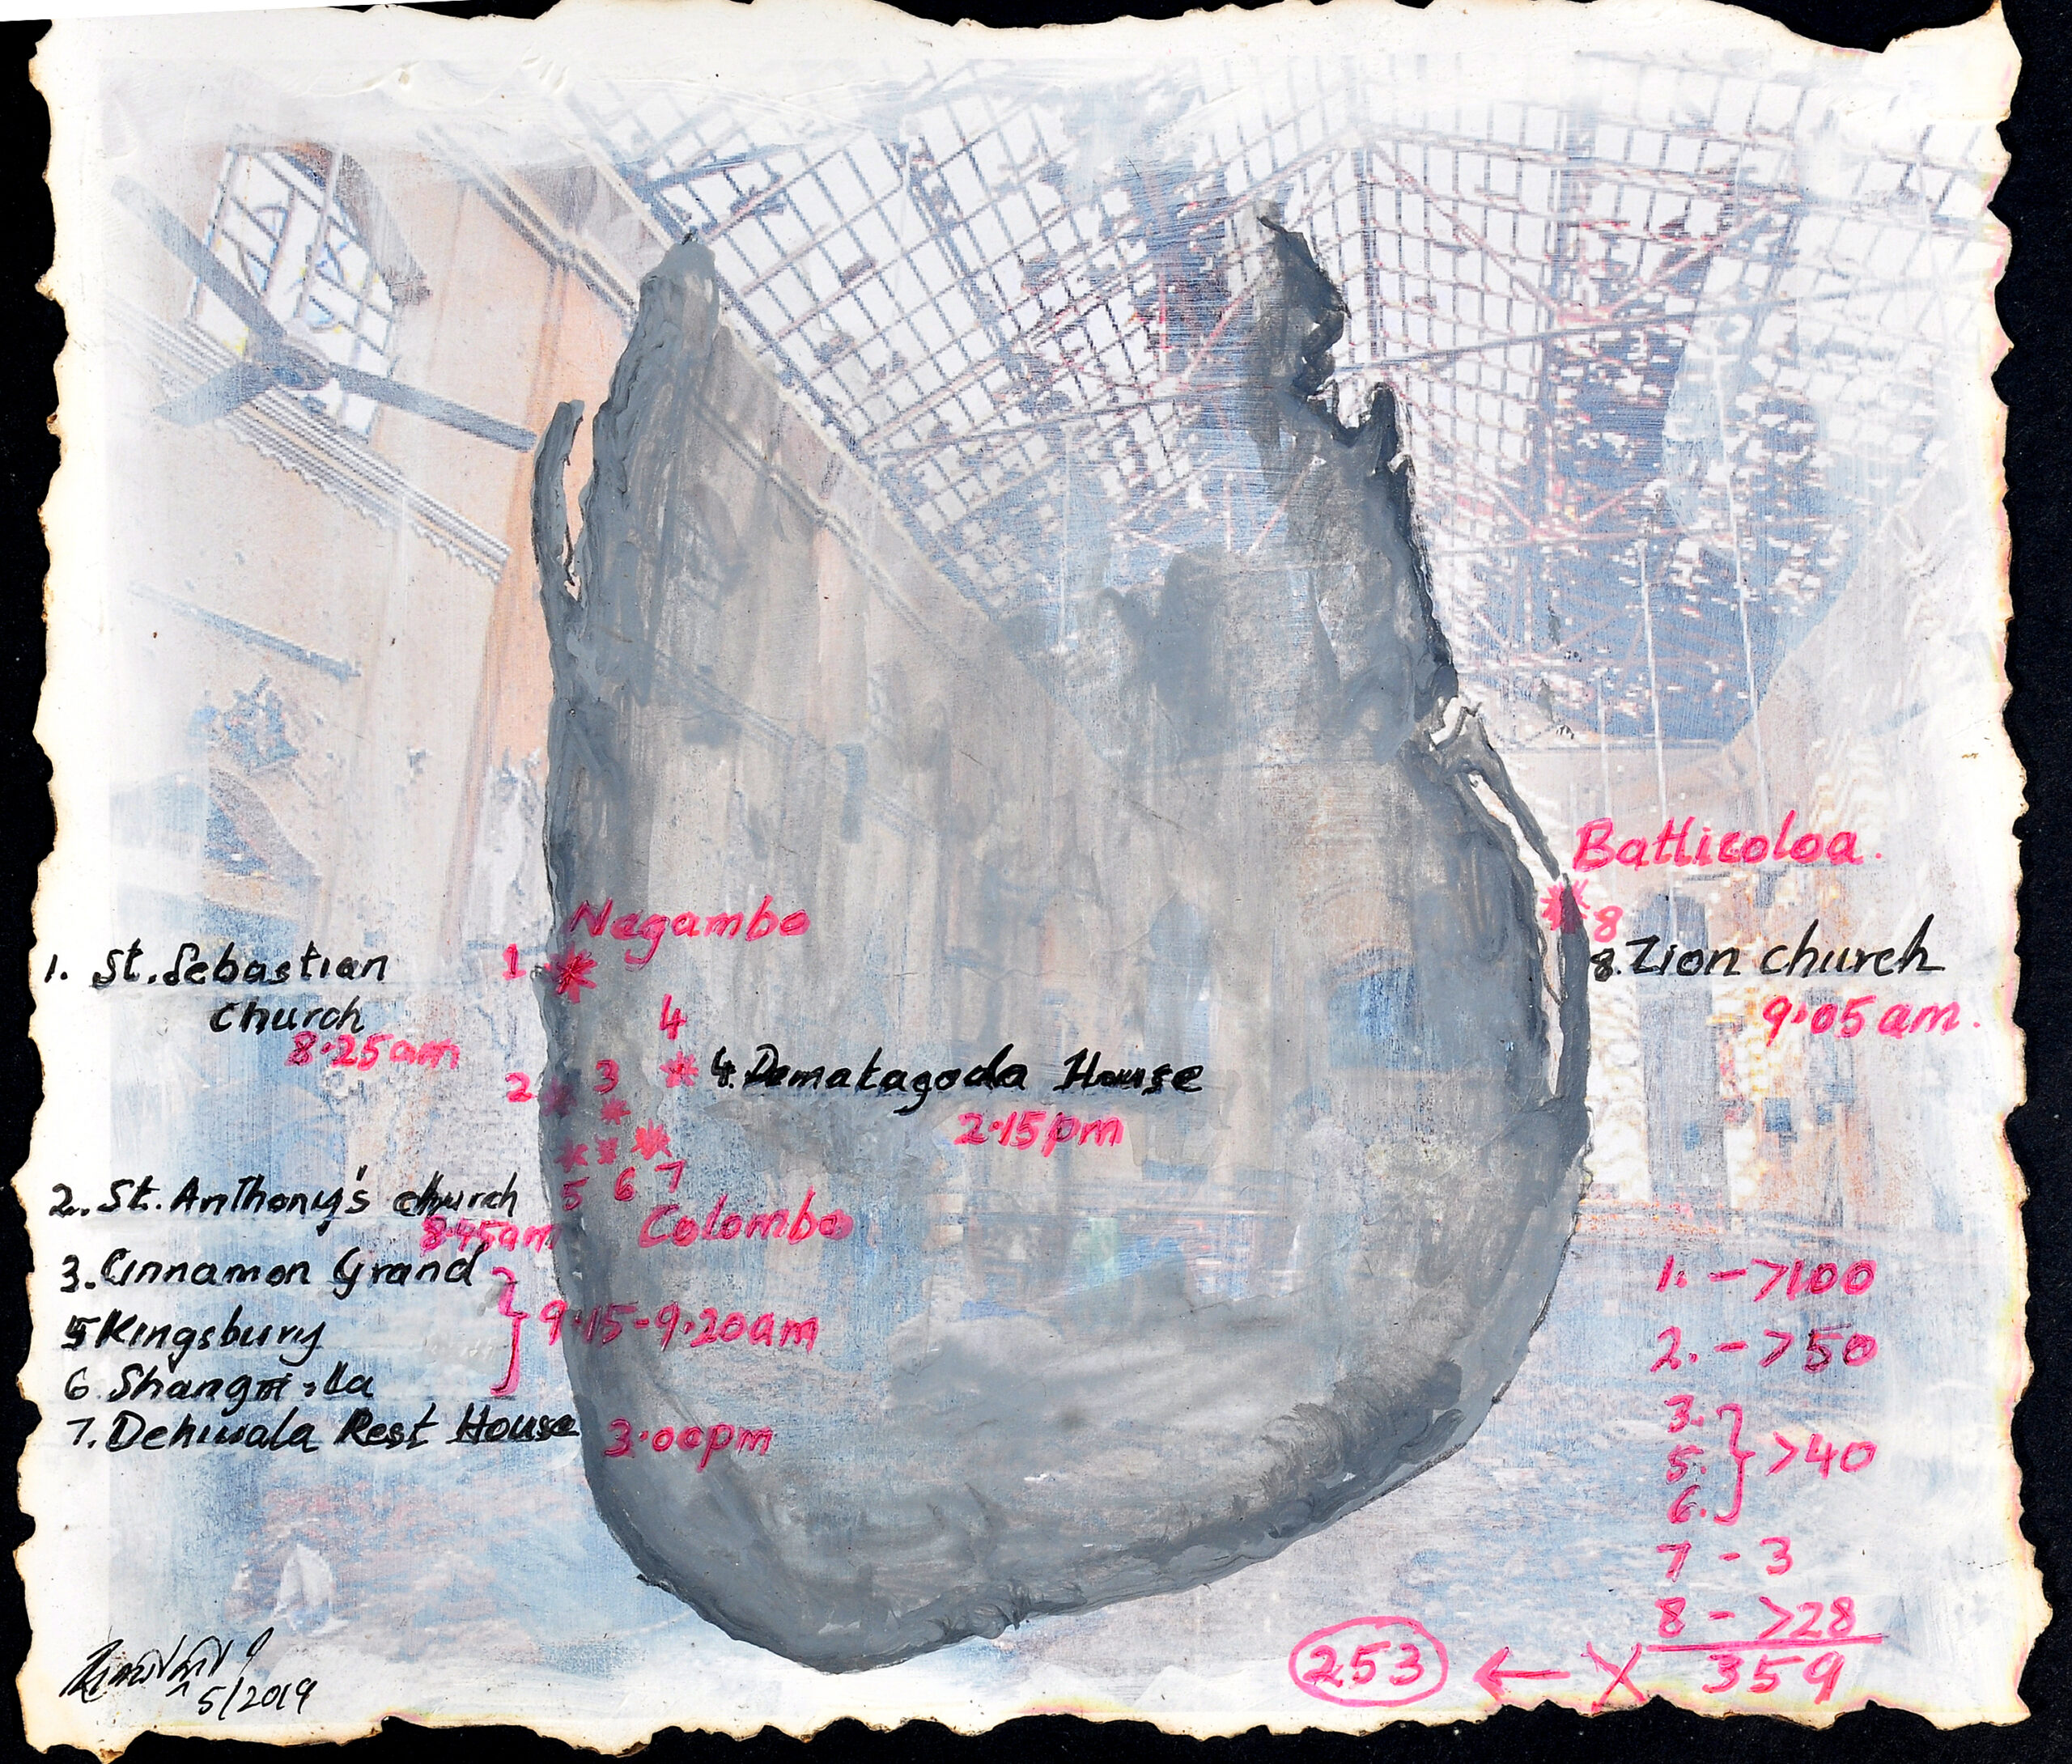 Batticoloa.
Negambo
1
8
1. St. Sebastian
church
8.25am
8. Zion church
9.05 am.
4
2
3
4. Dematagoda House
2.15pm
5 6 7
2. St. Anthony's church
8.45am
Colombo
3. Cinnamon Grand
5 Kingsbury
9.15-9.20am
6. Shangri-La
7. Dehiwala Rest House
3.00pm
1. - >100
2. - >50
3.
5. >40
6.
7 - 3
8 - >28
253 ← X 359
5/2019